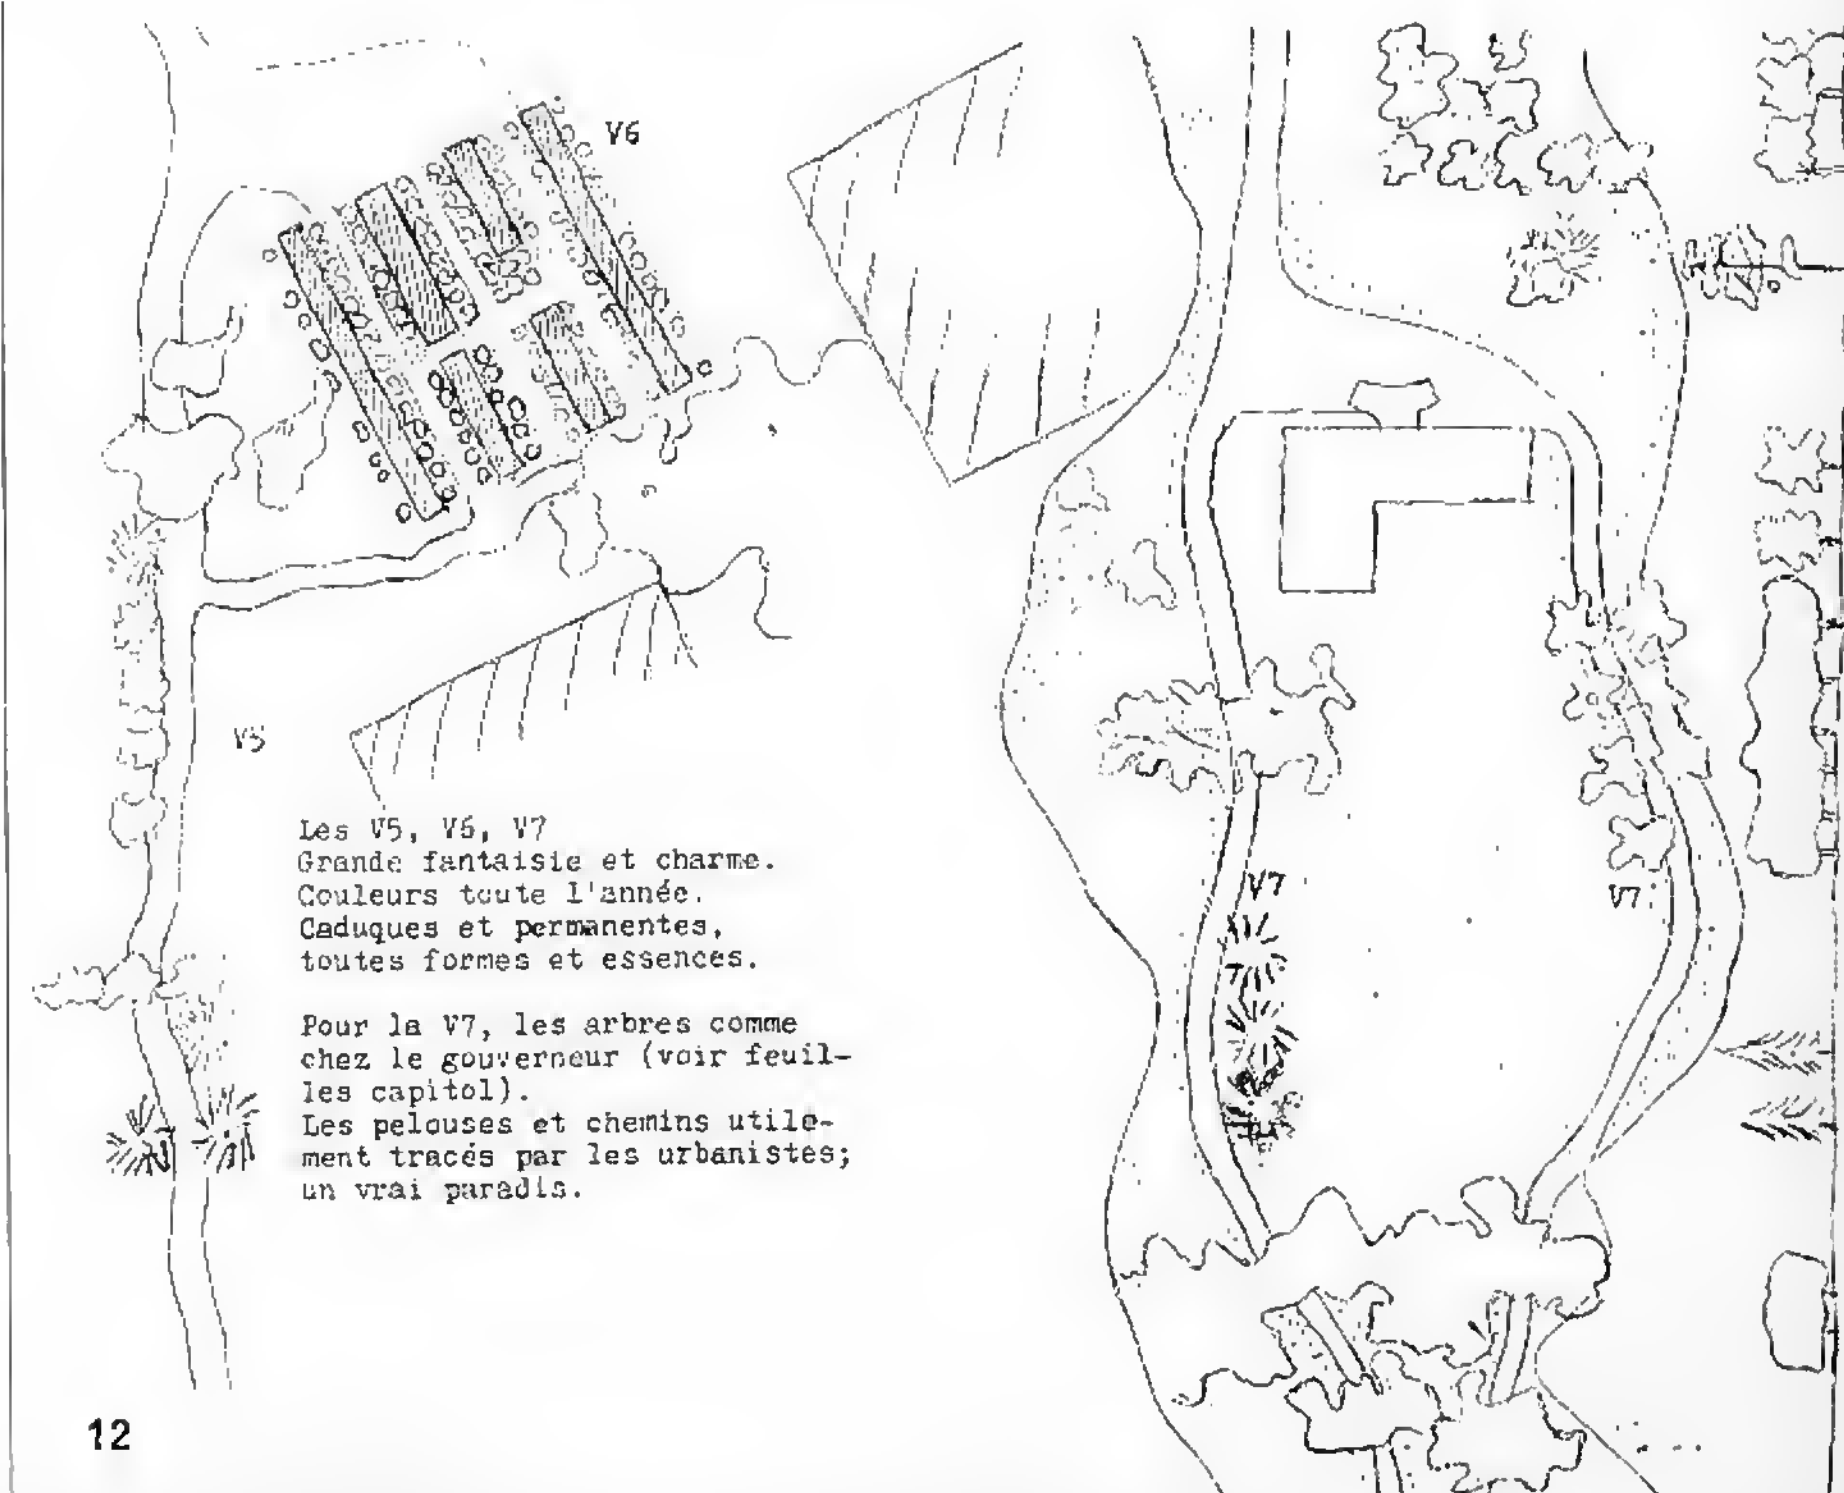 V6
V5
Les V5, V6, V7
Grande fantaisie et charme.
Couleurs toute l'année.
Caduques et permanentes,
toutes formes et essences.
Pour la V7, les arbres comme
chez le gouverneur (voir feuil-
les capitol).
Les pelouses et chemins utile-
ment tracés par les urbanistes;
un vrai paradis.
V7
V7
12